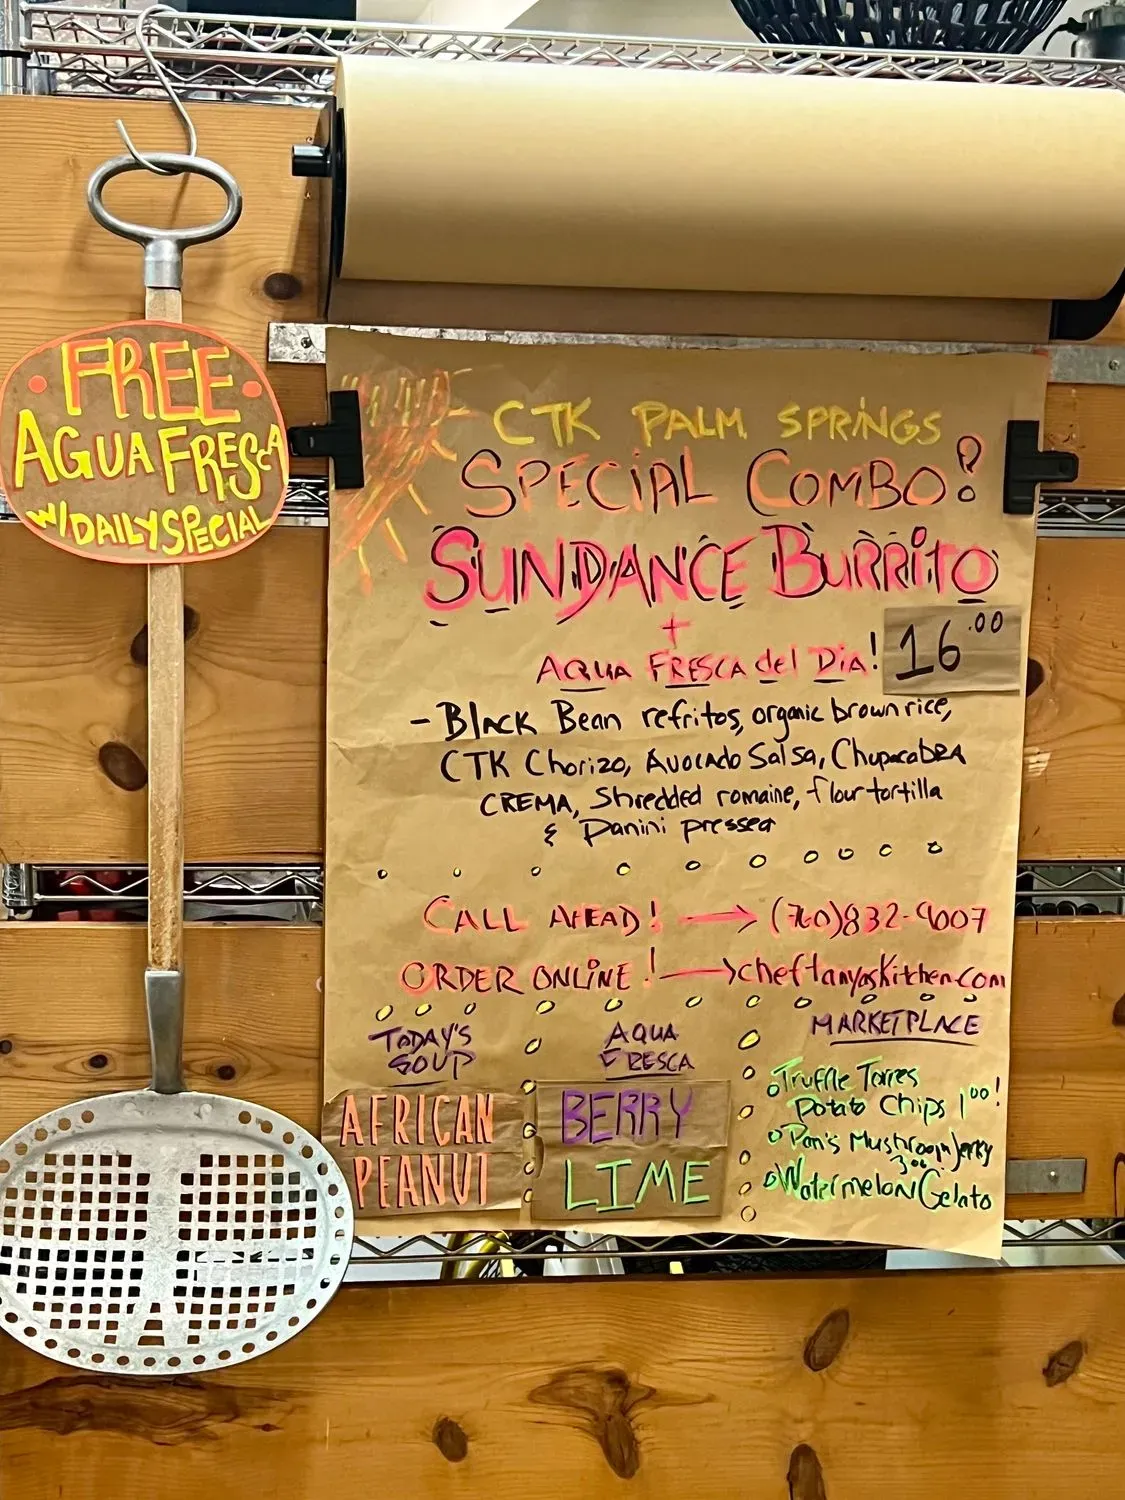 FREE
AGUA FRESCA
W/DAILY SPECIAL
CTK PALM SPRINGS
SPECIAL COMBO!
SUNDANCE BURRITO
+
AQUA FRESCA del Dia!
16.00
- Black Bean refritos, organic brown rice,
CTK Chorizo, Avocado Salsa, Chupacabra
CREMA, Shredded romaine, flour tortilla
& Panini pressed
CALL AHEAD! → (760)832-9007
ORDER ONLINE! → cheftanyaskitchen.com
TODAY'S
SOUP
AFRICAN
PEANUT
AQUA
FRESCA
BERRY
LIME
MARKETPLACE
Truffle Torres
Potato Chips 1.00!
Pan's Mushroom Jerky
3.00
Watermelon Gelato